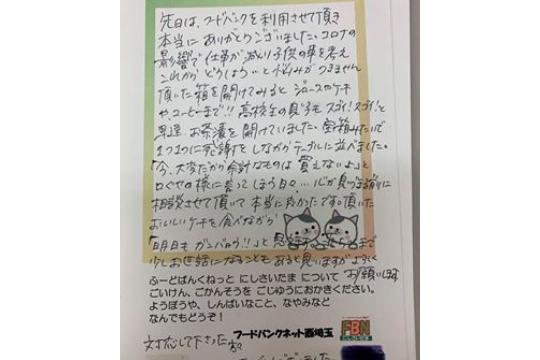 先日は、フードバンクを利用させて頂き
本当にありがとうございました。コロナの
影響で仕事が減り子供の事を考え
これからどうしよう…と悩みがつきません
頂いた箱を開けてみるとジュースやケーキ
や、コーヒーまで!! 高校生の息子もスゴイ!スゴイ!と
早速お茶漬を開けていました。宝箱みたいで
1つ1つに感謝をしながらテーブルに並べました。
「今、大変だから余計なものは買えないよ」と
口ぐせの様に言ってしまう日々…心が
相談させて頂いて本当に良かったです。頂いた
おいしいケーキを食べながら
「明日もガンバろう!!」と
少しお世話になることもあると思いますがよろしく
お願いします
ふーどばんくねっと にしさいたま について
ごいけん、ごかんそうを ごじゆうにおかきください。
ようぼうや、しんぱいなこと、なやみなど
なんでもどうぞ!
フードバンクネット西埼玉
FBN
対応して下さった
ございました